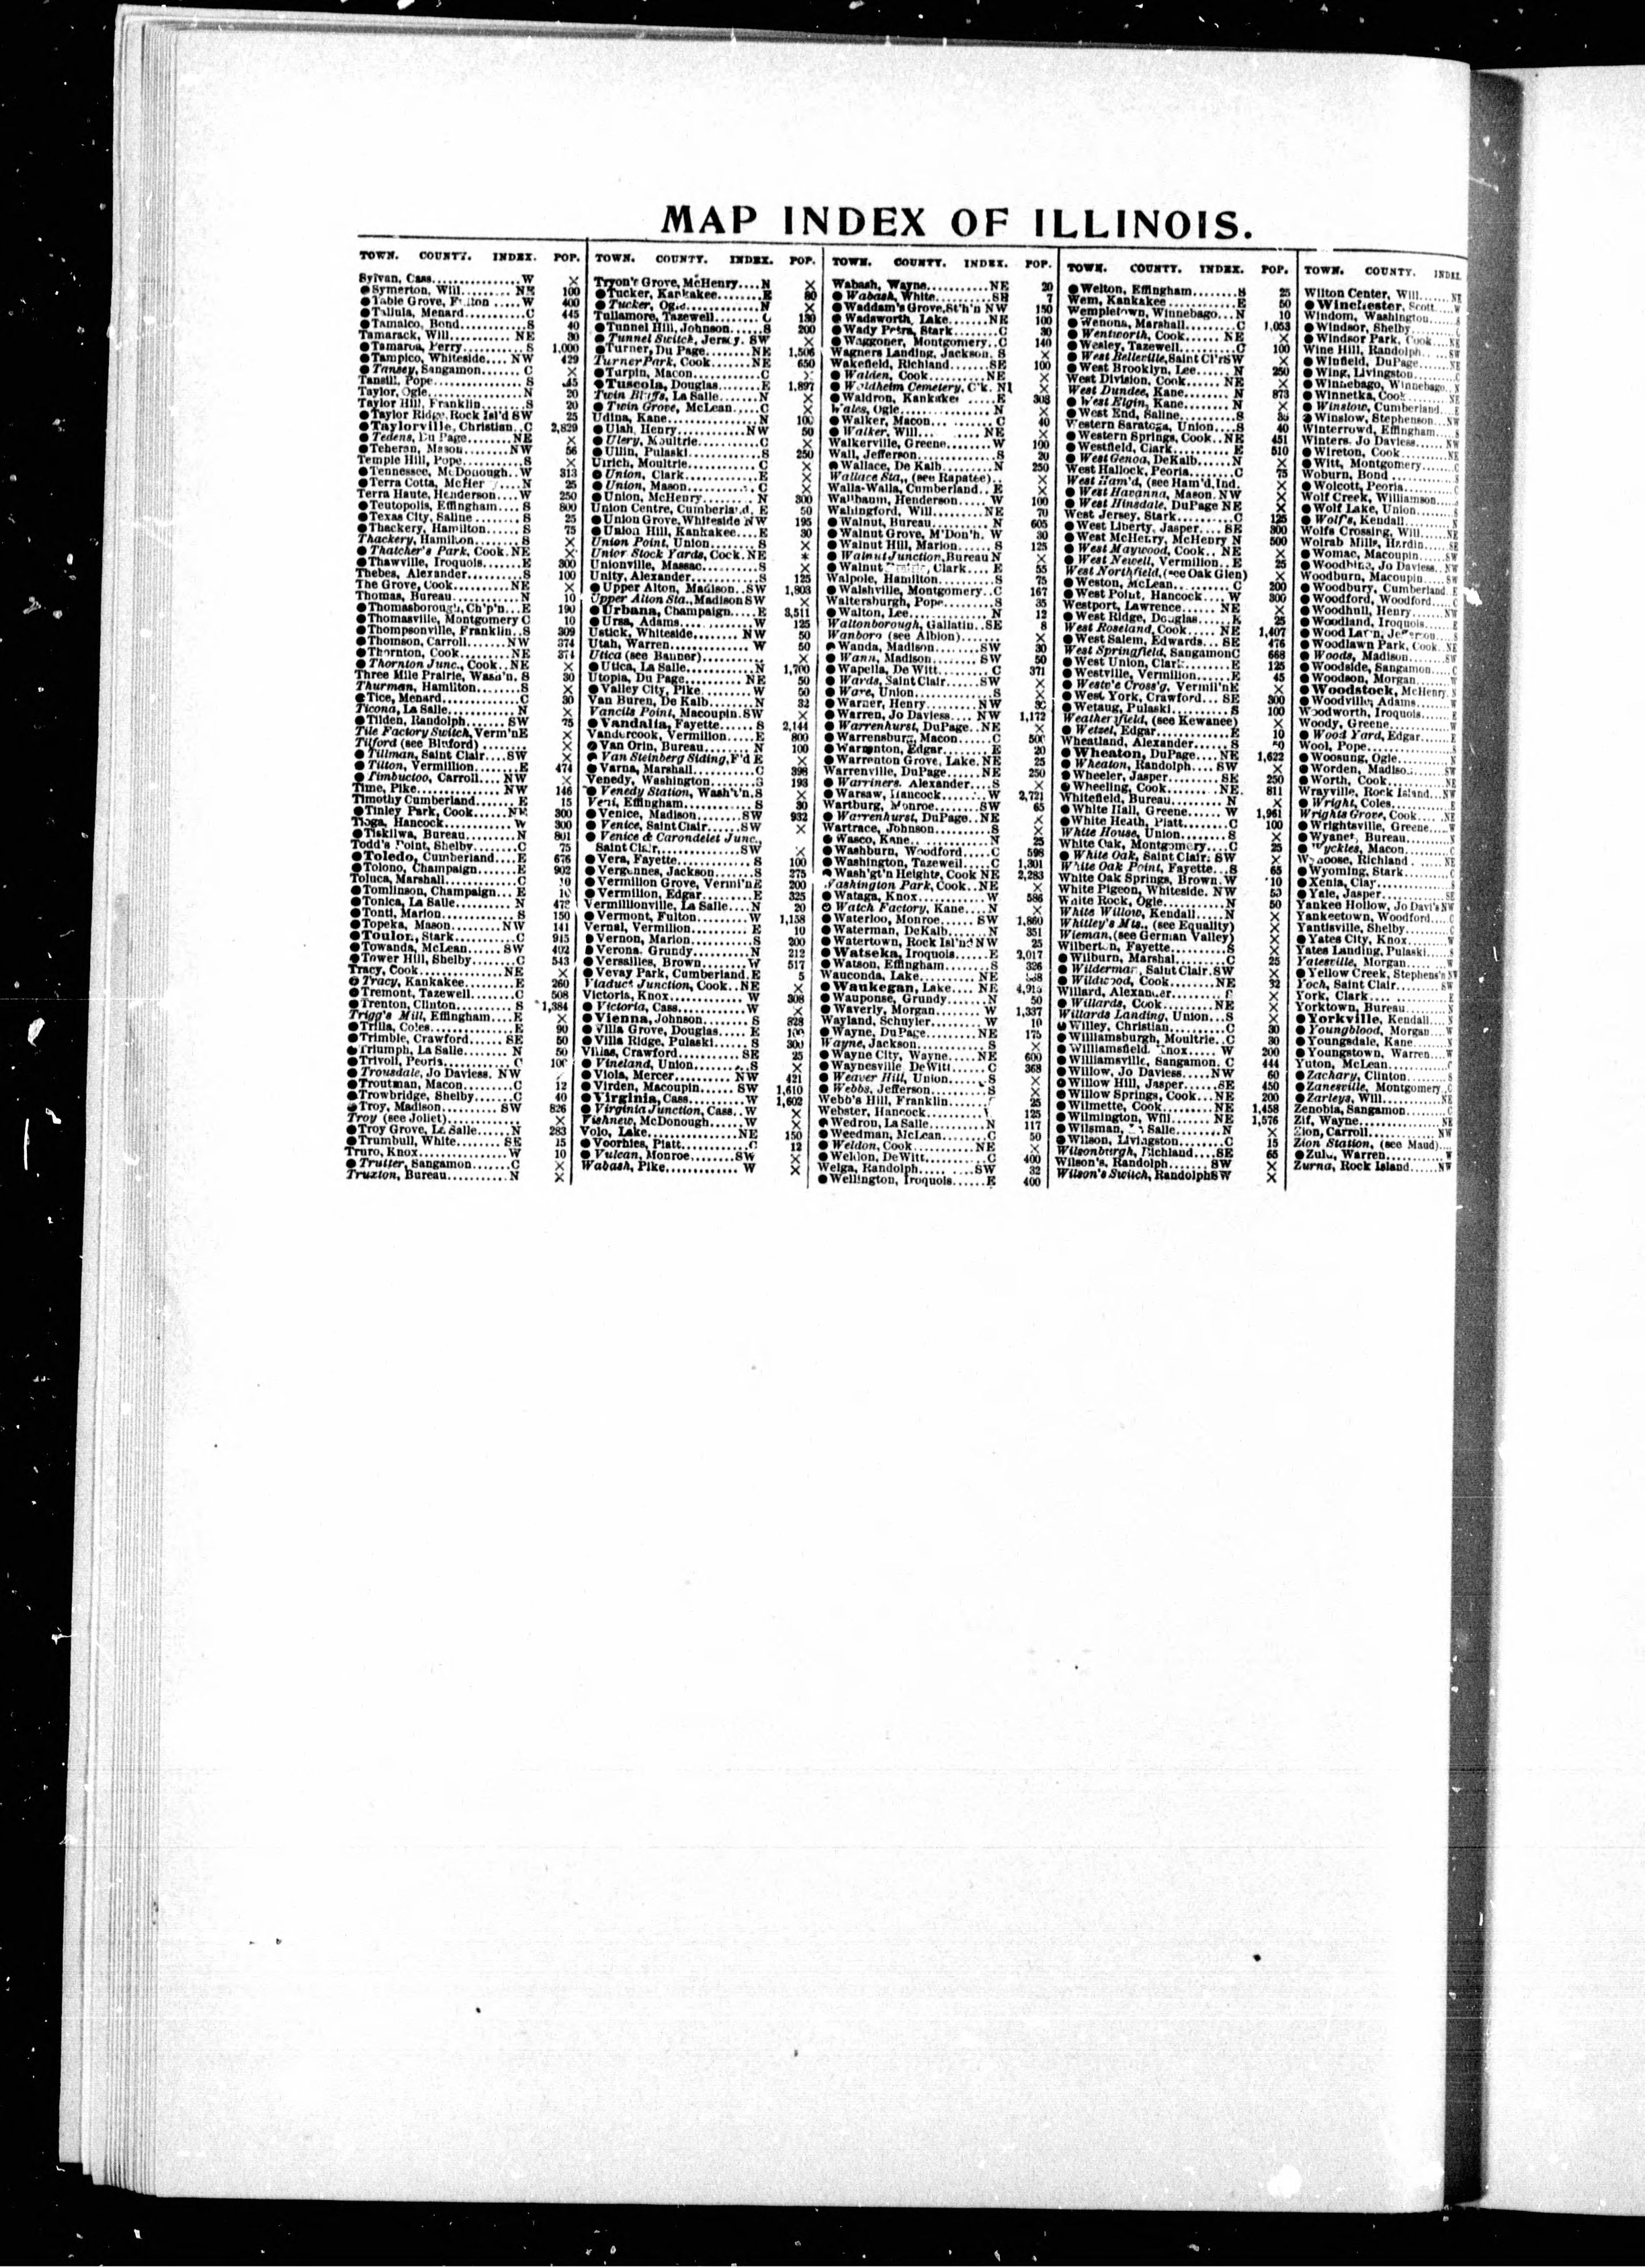 MAP INDEX OF ILLINOIS.
TOWN. COUNTY. INDEX. POP.
Sylvan, Cass W ×
●Symerton, Will NE 100
●Table Grove, W 400
●Tallula, Menard C 445
●Tamalco, Bond S 40
Tamarack, Will NE 30
●Tamaroa, Perry S 1,000
●Tampico, Whiteside NW 429
●Tansey, Sangamon C ×
Tansill, Pope S 45
Taylor, Ogle N 20
Taylor Hill, Franklin S 20
●Taylor Ridge, Rock Isl'd SW 25
●Taylorville, Christian C 2,829
●Tedens, Du Page NE ×
●Teheran, Mason NW 56
Temple Hill, Pope S ×
●Tennessee, McDonough W 313
●Terra Cotta, N 25
Terra Haute, Henderson W 250
●Teutopolis, Effingham S 800
●Texas City, Saline S 25
●Thackery, Hamilton S 75
Thackery, Hamilton S ×
●Thatcher's Park, Cook NE ×
●Thawville, Iroquois E 300
Thebes, Alexander S 100
The Grove, Cook NE ×
Thomas, Bureau N 10
●Thomasborough, Ch'p'n E 190
●Thomasville, Montgomery C 10
●Thompsonville, Franklin S 309
●Thomson, Carroll NW 374
●Thornton, Cook NE 374
●Thornton Junc., Cook NE ×
Three Mile Prairie, Wash'n. S 30
Thurman, Hamilton S ×
●Tice, Menard C 30
Ticona, La Salle N ×
●Tilden, Randolph SW 75
Tile Factory Switch, Verm'n E ×
Tilford (see Bluford) ×
●Tillman, Saint Clair SW ×
●Tilton, Vermillion E 474
●Timbuctoo, Carroll NW ×
Time, Pike NW 146
Timothy Cumberland E 15
●Tinley Park, Cook NE 300
Tioga, Hancock W 300
●Tiskilwa, Bureau N 801
Todd's Point, Shelby C 75
●Toledo, Cumberland E 676
●Tolono, Champaign E 902
Toluca, Marshall C
●Tomlinson, Champaign E
●Tonica, La Salle N
●Tonti, Marion S 150
●Topeka, Mason NW 141
●Toulon, Stark C 915
●Towanda, McLean SW 402
●Tower Hill, Shelby C 543
Tracy, Cook NE ×
●Tracy, Kankakee E 260
●Tremont, Tazewell C 508
●Trenton, Clinton S 1,384
Trigg's Mill, Effingham E ×
●Trilla, Coles E 90
●Trimble, Crawford SE 50
●Triumph, La Salle N 50
●Trivoli, Peoria C
●Trousdale, Jo Daviess. NW
●Troutman, Macon C 12
●Trowbridge, Shelby C 40
●Troy, Madison SW 826
Troy (see Joliet) ×
●Troy Grove, La Salle N 283
●Trumbull, White SE 15
Truro, Knox W 10
●Trutter, Sangamon C ×
Truxton, Bureau N ×
TOWN. COUNTY. INDEX. POP.
Tryon's Grove, McHenry N ×
●Tucker, Kankakee E 80
●Tucker, Ogle N ×
Tullamore, Tazewell C 130
●Tunnel Hill, Johnson S 200
●Tunnel Switch, Jersey. SW ×
●Turner, Du Page NE 1,506
Turner Park, Cook NE 650
●Turpin, Macon C ×
●Tuscola, Douglas E 1,897
Twin Bluffs, La Salle N ×
●Twin Grove, McLean C ×
Udina, Kane N 100
●Ulah, Henry NW 50
●Ulery, Moultrie C ×
●Ullin, Pulaski S 250
Ulrich, Moultrie C ×
●Union, Clark E ×
●Union, Mason C ×
●Union, McHenry N 300
Union Centre, Cumberland, E 50
●Union Grove, Whiteside NW 195
●Union Hill, Kankakee E 30
Union Point, Union S ×
Union Stock Yards, Cook NE *
Unionville, Massac S ×
Unity, Alexander S 125
●Upper Alton, Madison SW 1,803
Upper Alton Sta., Madison SW ×
●Urbana, Champaign E 3,511
●Ursa, Adams W 125
Ustick, Whiteside NW 50
Utah, Warren W 50
Utica (see Banner) ×
●Utica, La Salle N 1,700
Utopia, Du Page NE 50
●Valley City, Pike W 50
Van Buren, De Kalb N 32
Vancils Point, Macoupin. SW ×
●Vandalia, Fayette S 2,144
Vandercook, Vermilion E 800
●Van Orin, Bureau N 100
●Van Steinberg Siding, F'd E ×
●Varna, Marshall C 398
Venedy, Washington S 193
●Venedy Station, Wash't'n. S ×
Veni, Effingham S 30
●Venice, Madison SW 932
●Venice, Saint Clair SW ×
●Venice & Carondelet Junc.,
Saint Clair SW ×
●Vera, Fayette S 100
●Vergennes, Jackson S 275
●Vermilion Grove, Vermi'n E 200
●Vermilion, Edgar E 325
Vermillionville, La Salle N 20
●Vermont, Fulton W 1,158
Vernal, Vermilion E 10
●Vernon, Marion S 200
●Verona, Grundy N 212
●Versailles, Brown W 517
●Vevay Park, Cumberland. E 5
Viaduct Junction, Cook NE ×
Victoria, Knox W 308
●Victoria, Cass W ×
●Vienna, Johnson S 828
●Villa Grove, Douglas E
●Villa Ridge, Pulaski S 300
Villas, Crawford SE 25
●Vineland, Union S ×
●Viola, Mercer NW 421
●Virden, Macoupin SW 1,610
●Virginia, Cass W 1,602
●Virginia Junction, Cass W ×
Vishnew, McDonough W ×
Volo, Lake NE 150
●Voorhies, Piatt C 12
●Vulcan, Monroe SW ×
Wabash, Pike W ×
TOWN. COUNTY. INDEX. POP.
Wabash, Wayne NE 20
●Wabash, White SE 7
●Waddam's Grove, St'h'n NW 150
●Wadsworth, Lake NE 100
●Wady Petra, Stark C 30
●Waggoner, Montgomery C 140
Wagners Landing, Jackson, S ×
Wakefield, Richland SE 100
●Walden, Cook NE ×
●Waldheim Cemetery, C'k. ×
●Waldron, Kankakee E 308
Wales, Ogle N ×
●Walker, Macon C 40
●Walker, Will NE ×
Walkerville, Greene W 100
Wall, Jefferson S 20
●Wallace, De Kalb N 250
Wallace Sta., (see Rapatee) ×
Walla-Walla, Cumberland E ×
Wallbaum, Henderson W 100
Wallingford, Will NE 70
●Walnut, Bureau N 605
●Walnut Grove, M'Don'h. W 30
●Walnut Hill, Marion S 125
●Walnut Junction, Bureau N ×
●Walnut Clark E 55
Walpole, Hamilton S 75
●Walshville, Montgomery C 167
Waltersburgh, Pope S 35
●Walton, Lee N 12
Waltonborough, Gallatin SE 8
Wanboro (see Albion) ×
●Wanda, Madison SW 30
●Wann, Madison SW 50
●Wapella, De Witt C 371
●Wards, Saint Clair SW ×
●Ware, Union S ×
●Warner, Henry NW
●Warren, Jo Daviess NW 1,172
●Warrenhurst, DuPage NE ×
●Warrensburg, Macon C 500
●Warrenton, Edgar E 20
●Warrenton Grove, Lake. NE 25
Warrenville, DuPage NE 250
●Warriners, Alexander S ×
●Warsaw, Hancock W 2,721
Wartburg, Monroe SW 65
●Warrenhurst, DuPage NE ×
Wartrace, Johnson S ×
●Wasco, Kane N 25
●Washburn, Woodford C 598
●Washington, Tazewell C 1,301
●Wash'gt'n Heights, Cook NE 2,283
Washington Park, Cook NE ×
●Wataga, Knox W 586
●Watch Factory, Kane N ×
●Waterloo, Monroe SW 1,860
●Waterman, DeKalb N 351
●Watertown, Rock Isl'nd NW 25
●Watseka, Iroquois E 2,017
●Watson, Effingham S 326
Wauconda, Lake NE
●Waukegan, Lake NE 4,915
●Wauponse, Grundy N 50
●Waverly, Morgan W 1,337
Wayland, Schuyler W 10
●Wayne, DuPage NE 175
Wayne, Jackson S ×
●Wayne City, Wayne NE 600
●Waynesville DeWitt C 368
●Weaver Hill, Union S ×
●Webbs, Jefferson S ×
Webb's Hill, Franklin 25
Webster, Hancock 125
●Wedron, La Salle N 117
●Weedman, McLean C 50
●Weldon, Cook NE ×
●Weldon, DeWitt C 400
Welga, Randolph SW 32
●Wellington, Iroquois E 400
TOWN. COUNTY. INDEX. POP.
●Welton, Effingham S 25
Wem, Kankakee E 50
Wempletown, Winnebago N 10
●Wenona, Marshall C 1,053
●Wentworth, Cook NE ×
●Wesley, Tazewell C 100
●West Belleville, Saint Cl'r SW ×
●West Brooklyn, Lee N 250
West Division, Cook NE ×
West Dundee, Kane N 873
●West Elgin, Kane N ×
●West End, Saline S
Western Saratoga, Union S 40
●Western Springs, Cook NE 451
●Westfield, Clark E 510
●West Genoa, DeKalb N ×
West Hallock, Peoria C 75
West Ham'd, (see Ham'd, Ind. ×
●West Havanna, Mason. NW ×
●West Hinsdale, DuPage NE ×
West Jersey, Stark C 125
●West Liberty, Jasper SE 300
●West McHenry, McHenry N 500
●West Maywood, Cook NE ×
●West Newell, Vermilion E 25
West Northfield, (see Oak Glen) ×
●Weston, McLean C 200
●West Point, Hancock W 300
Westport, Lawrence NE ×
●West Ridge, Douglas E 25
West Roseland, Cook NE 1,407
●West Salem, Edwards SE 476
West Springfield, Sangamon C 668
●West Union, Clark E 125
●Westville, Vermilion E 45
●Weste'e Cross'g, Vermil'n E ×
●West York, Crawford SE 300
●Wetaug, Pulaski S 100
Weathersfield, (see Kewanee) ×
●Wetzel, Edgar E 10
Wheatland, Alexander S
●Wheaton, DuPage NE 1,622
●Wheaton, Randolph SW ×
●Wheeler, Jasper SE 250
●Wheeling, Cook NE. 811
Whitefield, Bureau N ×
●White Hall, Greene W 1,961
●White Heath, Piatt C 100
White House, Union S ×
White Oak, Montgomery C 25
●White Oak, Saint Clair. SW ×
White Oak Point, Fayette S 65
White Oak Springs, Brown. W 10
White Pigeon, Whiteside. NW 50
White Rock, Ogle N 50
White Willow, Kendall N ×
Whitley's Mts., (see Equality) ×
Wieman, (see German Valley) ×
Wilberton, Fayette S ×
●Wilburn, Marshal C 25
●Wilderman, Saint Clair SW ×
●Wildwood, Cook NE 32
Willard, Alexander ×
●Willards, Cook NE ×
Willards Landing, Union S ×
●Willey, Christian C 30
●Williamsburgh, Moultrie C 30
●Williamsfield, Knox W 200
●Williamsville, Sangamon, C 444
●Willow, Jo Daviess NW 60
●Willow Hill, Jasper SE 450
●Willow Springs, Cook NE 200
●Wilmette, Cook NE 1,458
●Wilmington, Will NE 1,576
●Wilsman, Salle N ×
●Wilson, Livingston C 15
Wilsonburgh, Richland SE 65
Wilson's, Randolph SW ×
Wilson's Switch, Randolph SW ×
TOWN. COUNTY. INDEX.
Wilton Center, Will NE
●Winchester, Scott W
Windom, Washington S
●Windsor, Shelby C
●Windsor Park, Cook NE
Wine Hill, Randolph SW
●Winfield, DuPage NE
●Wing, Livingston C
●Winnebago, Winnebago N
●Winnetka, Cook NE
●Winslow, Cumberland E
●Winslow, Stephenson NW
Winterrowd, Effingham S
Winters, Jo Daviess NW
●Wireton, Cook NE
●Witt, Montgomery C
Woburn, Bond S
●Wolcott, Peoria C
Wolf Creek, Williamson
●Wolf Lake, Union S
●Wolf's, Kendall N
Wolfs Crossing, Will NE
Wolrab Mills, Hardin SE
●Womac, Macoupin SW
●Woodbine, Jo Daviess NW
Woodburn, Macoupin SW
●Woodbury, Cumberland E
●Woodford, Woodford C
●Woodhull, Henry NW
●Woodland, Iroquois E
●Wood Lawn, Jefferson S
●Woodlawn Park, Cook NE
●Woods, Madison SW
●Woodside, Sangamon C
●Woodson, Morgan W
●Woodstock, McHenry N
●Woodville, Adams W
Woodworth, Iroquois E
Woody, Greene W
●Wood Yard, Edgar E
Wool, Pope S
●Woosung, Ogle N
●Worden, Madison SW
●Worth, Cook NE
Wrayville, Rock Island NW
●Wright, Coles E
Wrights Grove, Cook NE
●Wrightsville, Greene W
●Wyanet, Bureau N
●Wyckles, Macon C
Wynoose, Richland NE
●Wyoming, Stark C
●Xenia, Clay S
●Yale, Jasper SE
Yankee Hollow, Jo Davi's NW
Yankeetown, Woodford C
Yantisville, Shelby C
●Yates City, Knox W
Yates Landing, Pulaski S
Yatesville, Morgan W
●Yellow Creek, Stephens'n NW
Yoch, Saint Clair SW
York, Clark E
Yorktown, Bureau N
●Yorkville, Kendall N
●Youngblood, Morgan W
●Youngsdale, Kane N
●Youngstown, Warren W
Yuton, McLean C
●Zachary, Clinton S
●Zanesville, Montgomery C
●Zarleys, Will NE
Zenobia, Sangamon C
Zif, Wayne NE
Zion, Carroll NW
Zion Station, (see Maud)
●Zulu, Warren W
Zurna, Rock Island NW